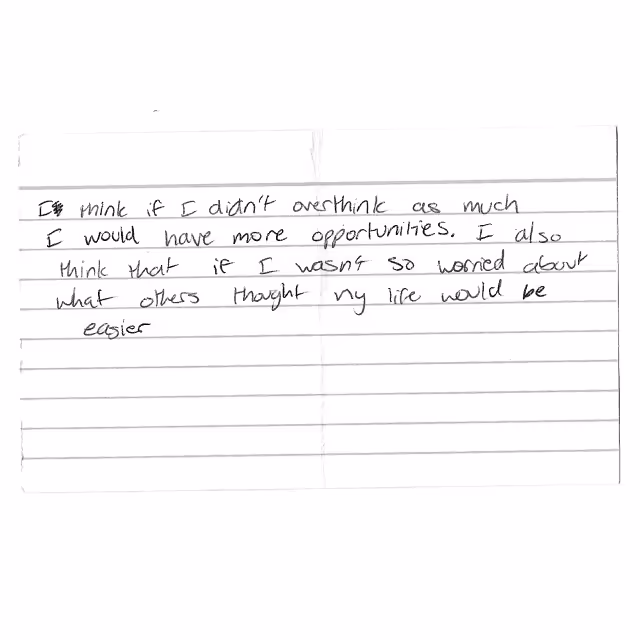 I think if I didn't overthink as much
I would have more opportunities. I also
think that if I wasn't so worried about
what others thought my life would be
easier